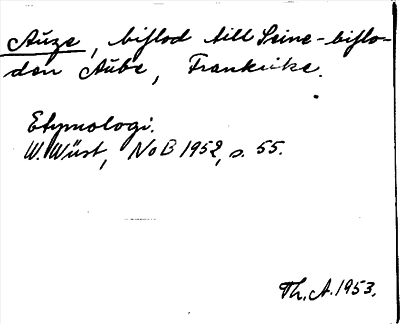 Auze, biflod till Seine-biflo-
den Aube, Frankrike.
Etymologi.
W. Wüst, NoB 1952, s. 55.
Th. A. 1953.